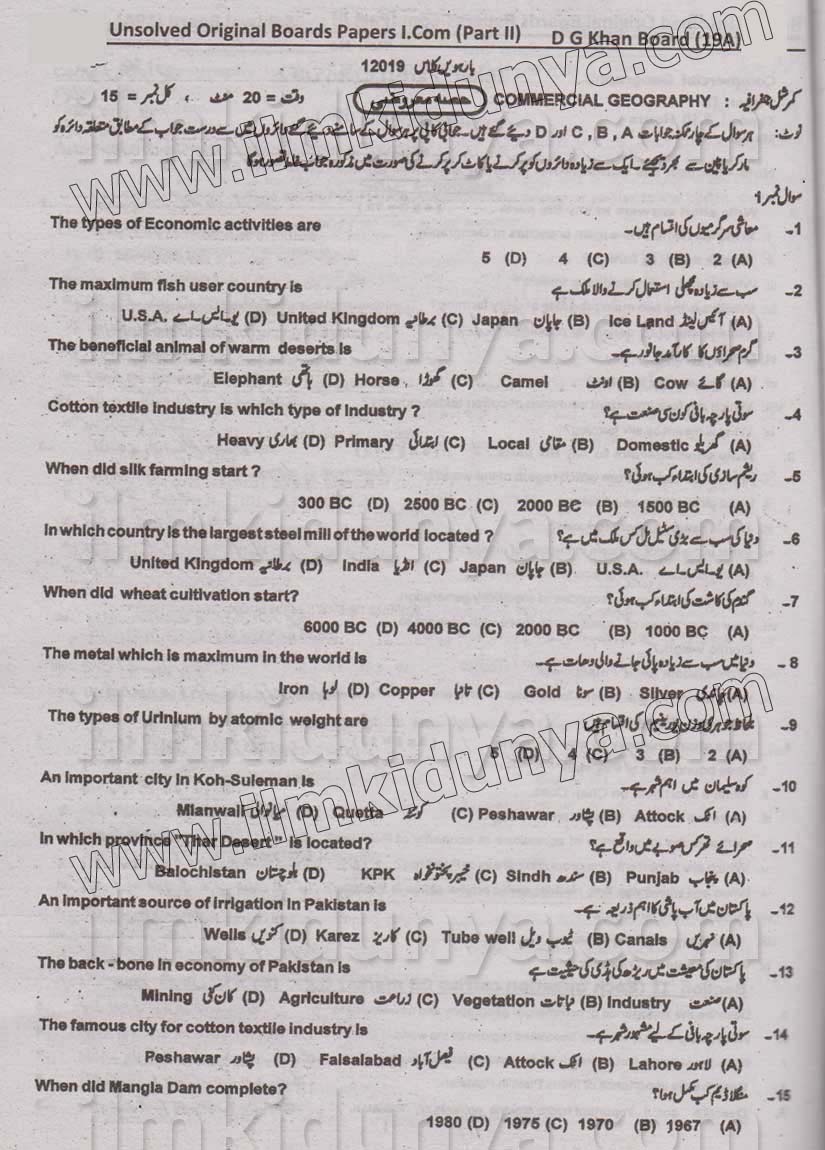 Unsolved Original Boards Papers I.Com (Part II) D G Khan Board (19A)
بارہویں کلاس 12019
کمرشل جغرافیہ : COMMERCIAL GEOGRAPHY حصہ معروضی وقت = 20 منٹ ، کل نمبر = 15
نوٹ: ہر سوال کے چار ممکنہ جوابات A , B , C اور D دیئے گئے ہیں۔ جوابی کاپی پر ہر سوال کے سامنے دیئے گئے دائروں میں سے درست جواب کے مطابق متعلقہ دائرہ کو
مارکر یا پین سے بھر دیجئے۔ ایک سے زیادہ دائروں کو پر کرنے یا کاٹ کر پر کرنے کی صورت میں مذکورہ جواب غلط تصور ہوگا
سوال نمبر 1
The types of Economic activities are معاشی سرگرمیوں کی اقسام ہیں۔ -1
5 (D) 4 (C) 3 (B) 2 (A)
The maximum fish user country is سب سے زیادہ مچھلی استعمال کرنے والا ملک ہے -2
U.S.A. یو۔ایس۔اے (D) United Kingdom برطانیہ (C) Japan جاپان (B) Ice Land آئس لینڈ (A)
The beneficial animal of warm deserts is گرم صحراؤں کا کارآمد جانور ہے۔ -3
Elephant ہاتھی (D) Horse گھوڑا (C) Camel اونٹ (B) Cow گائے (A)
Cotton textile industry is which type of industry ? سوتی پارچہ بانی کون سی صنعت ہے؟ -4
Heavy بھاری (D) Primary ابتدائی (C) Local مقامی (B) Domestic گھریلو (A)
When did silk farming start ? ریشم سازی کی ابتداء کب ہوئی؟ -5
300 BC (D) 2500 BC (C) 2000 BC (B) 1500 BC (A)
In which country is the largest steel mill of the world located ? دنیا کی سب سے بڑی سٹیل مل کس ملک میں ہے؟ -6
United Kingdom برطانیہ (D) India انڈیا (C) Japan جاپان (B) U.S.A. یو۔ایس۔اے (A)
When did wheat cultivation start? گندم کی کاشت کی ابتداء کب ہوئی؟ -7
6000 BC (D) 4000 BC (C) 2000 BC (B) 1000 BC (A)
The metal which is maximum in the world is دنیا میں سب سے زیادہ پائی جانے والی دھات ہے۔ -8
Iron لوہا (D) Copper تانبا (C) Gold سونا (B) Silver چاندی (A)
The types of Urinium by atomic weight are بلحاظ جوہری وزن یورینیم کی اقسام ہیں -9
5 (D) 4 (C) 3 (B) 2 (A)
An important city in Koh-Suleman is کوہ سلیمان میں اہم شہر ہے۔ -10
Mianwali میانوالی (D) Quetta کوئٹہ (C) Peshawar پشاور (B) Attock اٹک (A)
In which province "Thar Desert" is located? صحرائے تھر کس صوبے میں واقع ہے؟ -11
Balochistan بلوچستان (D) KPK خیبر پختونخواہ (C) Sindh سندھ (B) Punjab پنجاب (A)
An important source of irrigation in Pakistan is پاکستان میں آب پاشی کا اہم ذریعہ ہے۔ -12
Wells کنویں (D) Karez کاریز (C) Tube well ٹیوب ویل (B) Canals نہریں (A)
The back - bone in economy of Pakistan is پاکستان کی معیشت میں ریڑھ کی ہڈی کی حیثیت ہے -13
Mining کان کنی (D) Agriculture زراعت (C) Vegetation نباتات (B) Industry صنعت (A)
The famous city for cotton textile industry is سوتی پارچہ بانی کے لیے مشہور شہر ہے۔ -14
Peshawar پشاور (D) Faisalabad فیصل آباد (C) Attock اٹک (B) Lahore لاہور (A)
When did Mangla Dam complete? منگلا ڈیم کب مکمل ہوا؟ -15
1980 (D) 1975 (C) 1970 (B) 1967 (A)
www.ilmkidunya.com
www.ilmkidunya.com
ilmkidunya.com
ilmkidunya.com
ilmkidunya.com
ilmkidunya.com
ilmkidunya.com
ilmkidunya.com